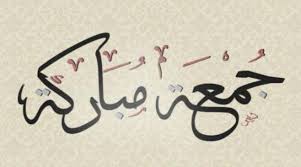 جُمعَة مُباركَة